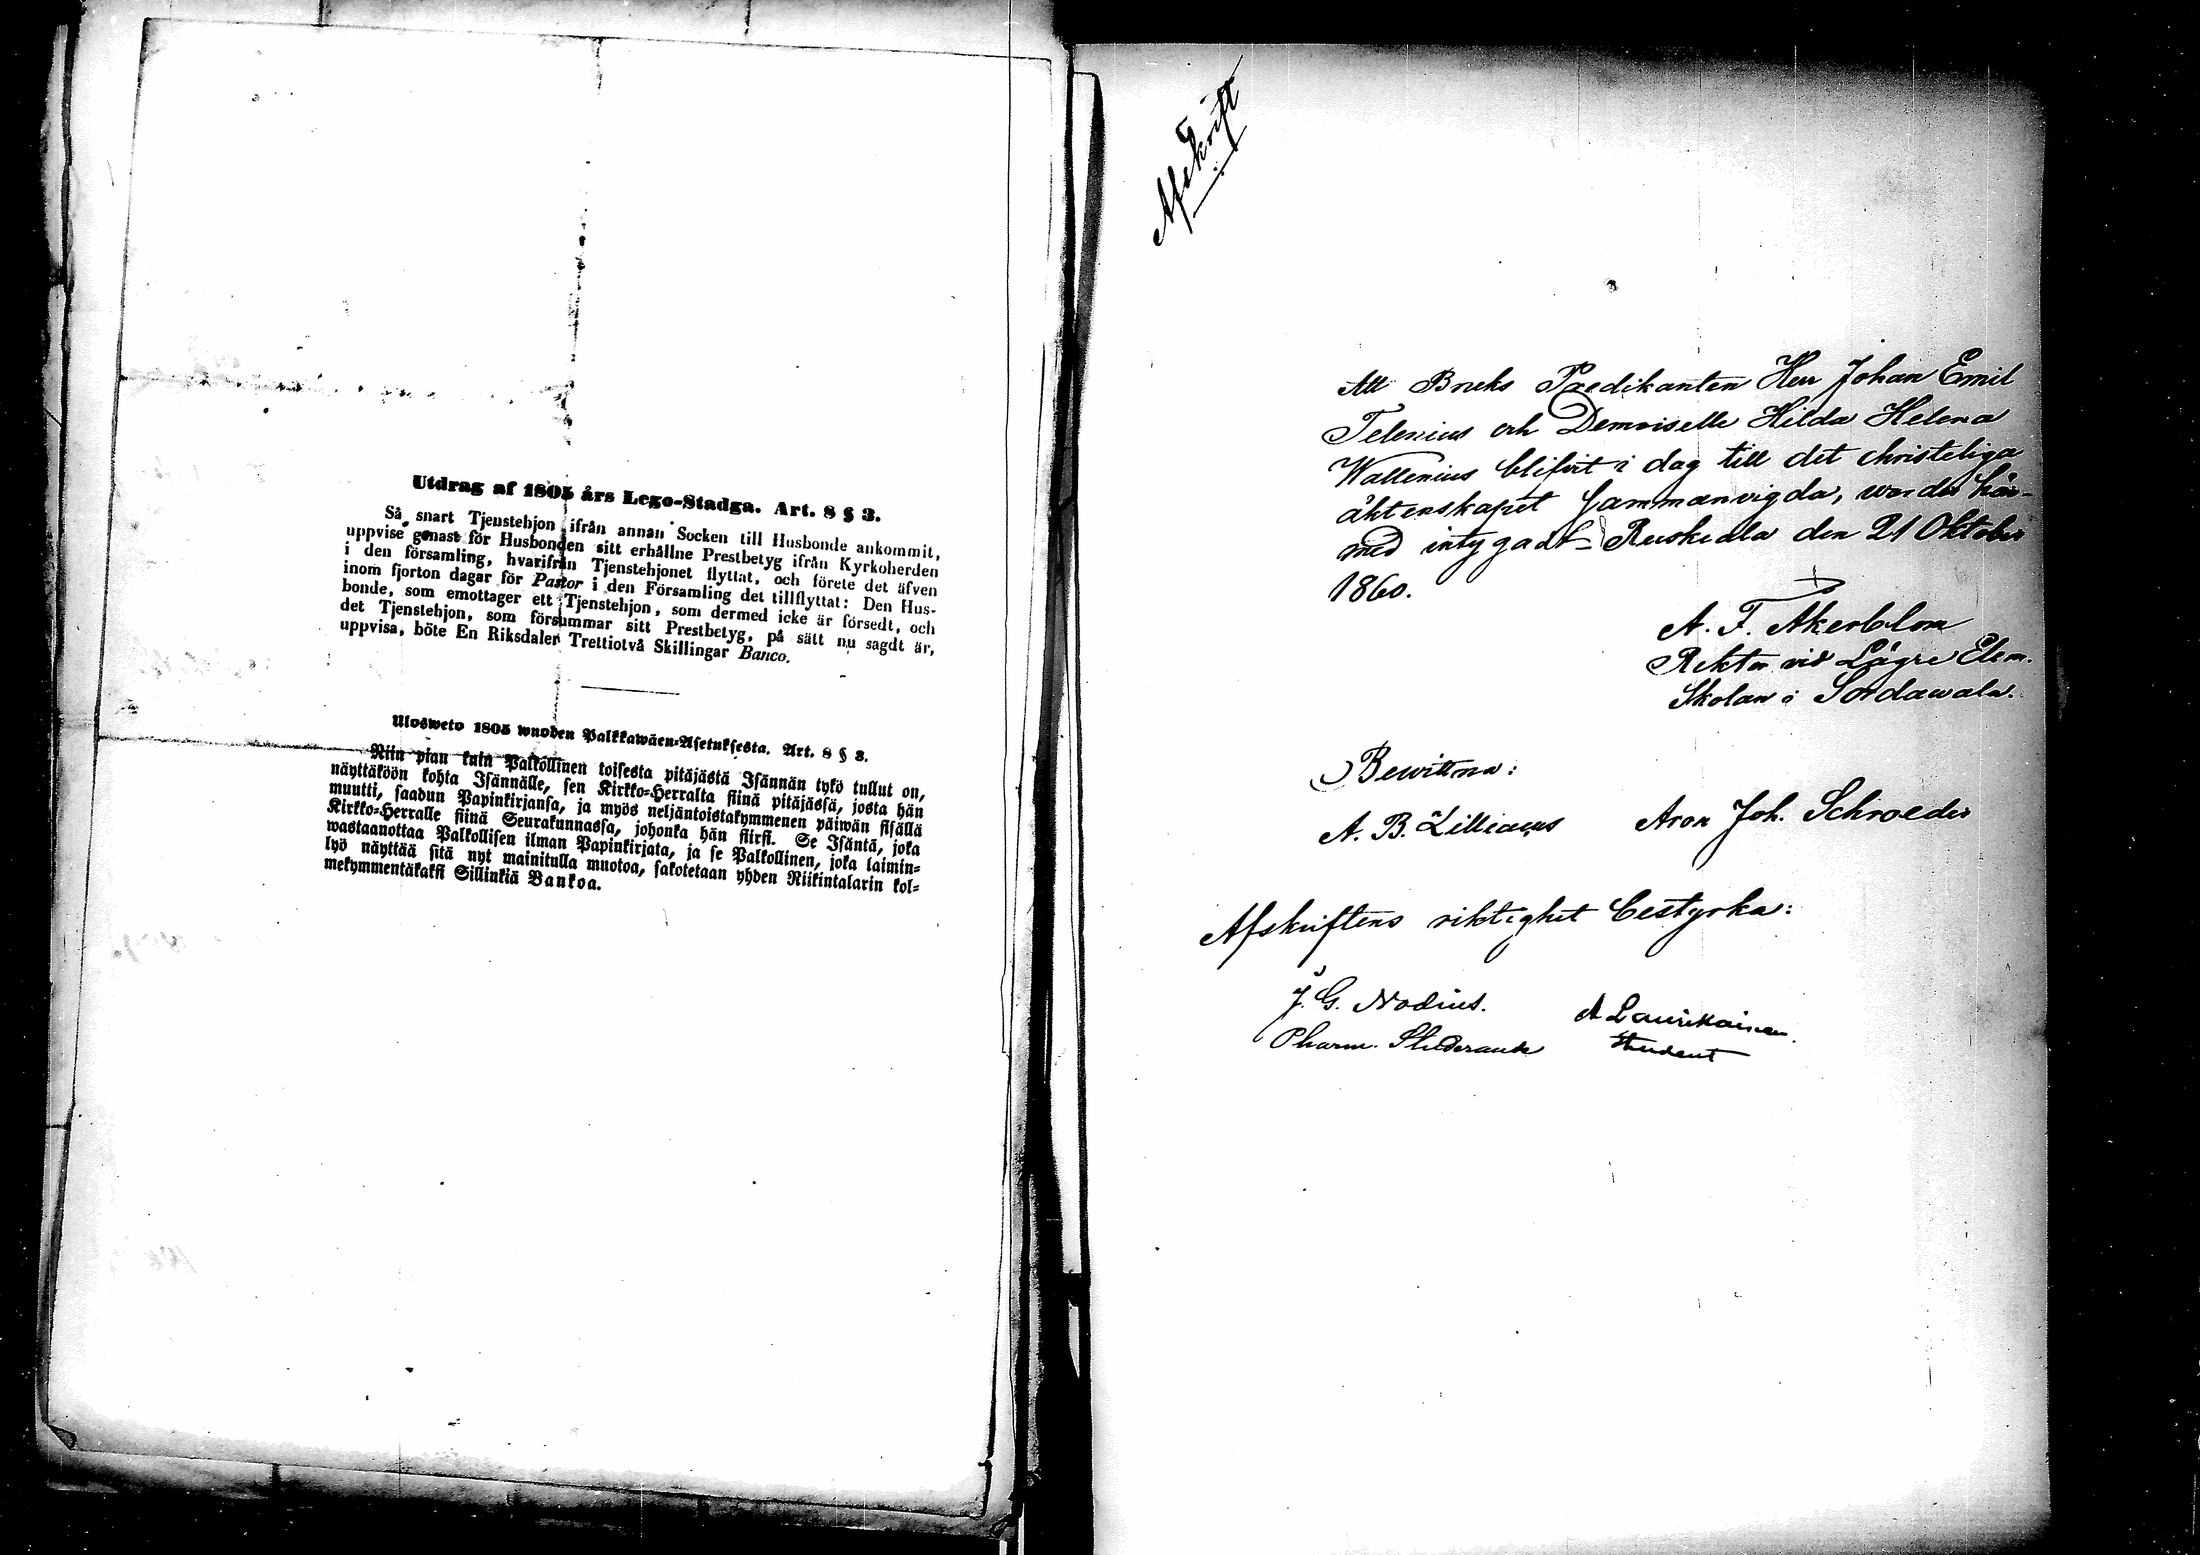 Utdrag af 1805 års Lego-Stadga. Art. 8 § 3.
Så snart Tjenstehjon ifrån annan Socken till Husbonde ankommit,
uppvise genast för Husbonden sitt erhållne Prestbetyg ifrån Kyrkoherden
i den församling, hvarifrån Tjenstehjonet flyttat, och förete det äfven
inom fjorton dagar för Pastor i den Församling det tillflyttat: Den Hus-
bonde, som emottager ett Tjenstehjon, som dermed icke är försedt, och
det Tjenstehjon, som försummar sitt Prestbetyg, på sätt nu sagdt är,
uppvisa, böte En Riksdaler Trettiotvå Skillingar Banco.
Ulosweto 1805 wuoden Palkkawäen-Asetuksesta. Art. 8 § 3.
Niin pian kuin Palkollinen toisesta pitäjästä Isännän tykö tullut on,
näyttäköön kohta Isännälle, sen Kirkko-Herralta siinä pitäjässä, josta hän
muutti, saadun Papinkirjansa, ja myös neljäntoistakymmenen päiwän sisällä
Kirkko-Herralle siinä Seurakunnassa, johonka hän siirsi. Se Isäntä, joka
wastaanottaa Palkollisen ilman Papinkirjata, ja se Palkollinen, joka laimin-
lyö näyttää sitä nyt mainitulla muotoa, sakotetaan yhden Riikintalarin kol-
mekymmentäkaksi Sillinkiä Bankoa.
Afskrift
Att Bruks Predikanten Herr Johan Emil
Telenius och Demoiselle Hilda Helena
Wallenius blifvit i dag till det christeliga
äktenskapet sammanvigda, warder här-
med intygadt Ruskeala den 21 Oktober
1860.
A. F. Åkerblom
Rektor vid Lägre Elem.
Skolan i Sordawala.
Bewittna:
A. B. Lilliacus Aron Joh. Schroeder
Afskriftens riktighet bestyrka:
J. G. Nodius. A Laurikainen
Pharm. Studerande Student